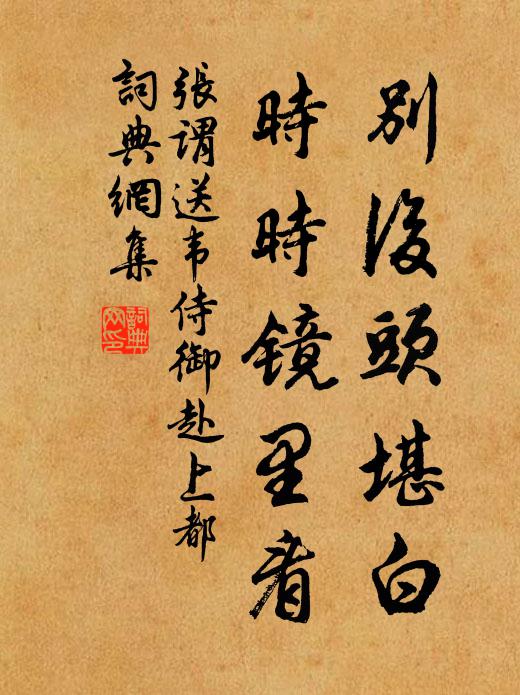 別後頭堪白
時時镜里看
張謂送韦侍御赴上都
詞典網集
詞典網印